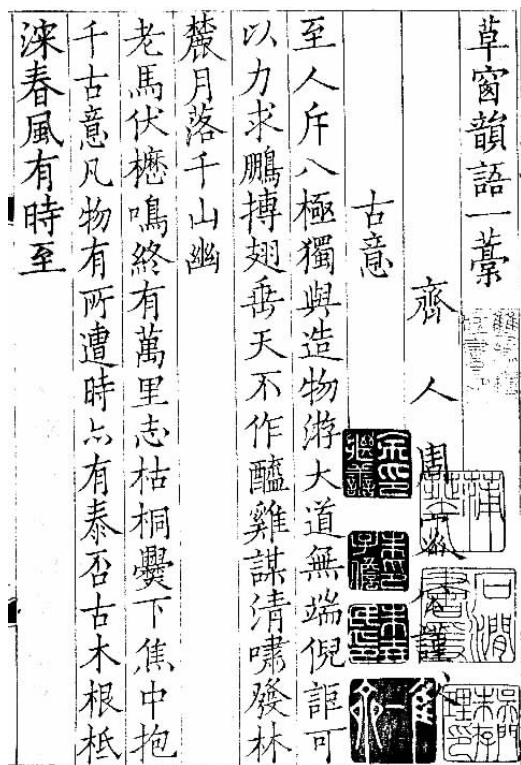 草窗韻語一藁
齊人周密公謹父
古意
至人斥八極獨與造物游大道無端倪詎可
以力求鵬搏翅垂天不作醯雞謀清嘯發林
麓月落千山幽
老馬伏櫪鳴終有萬里志枯桐爨下焦中抱
千古意凡物有所遭時亦有泰否古木根柢
深春風有時至